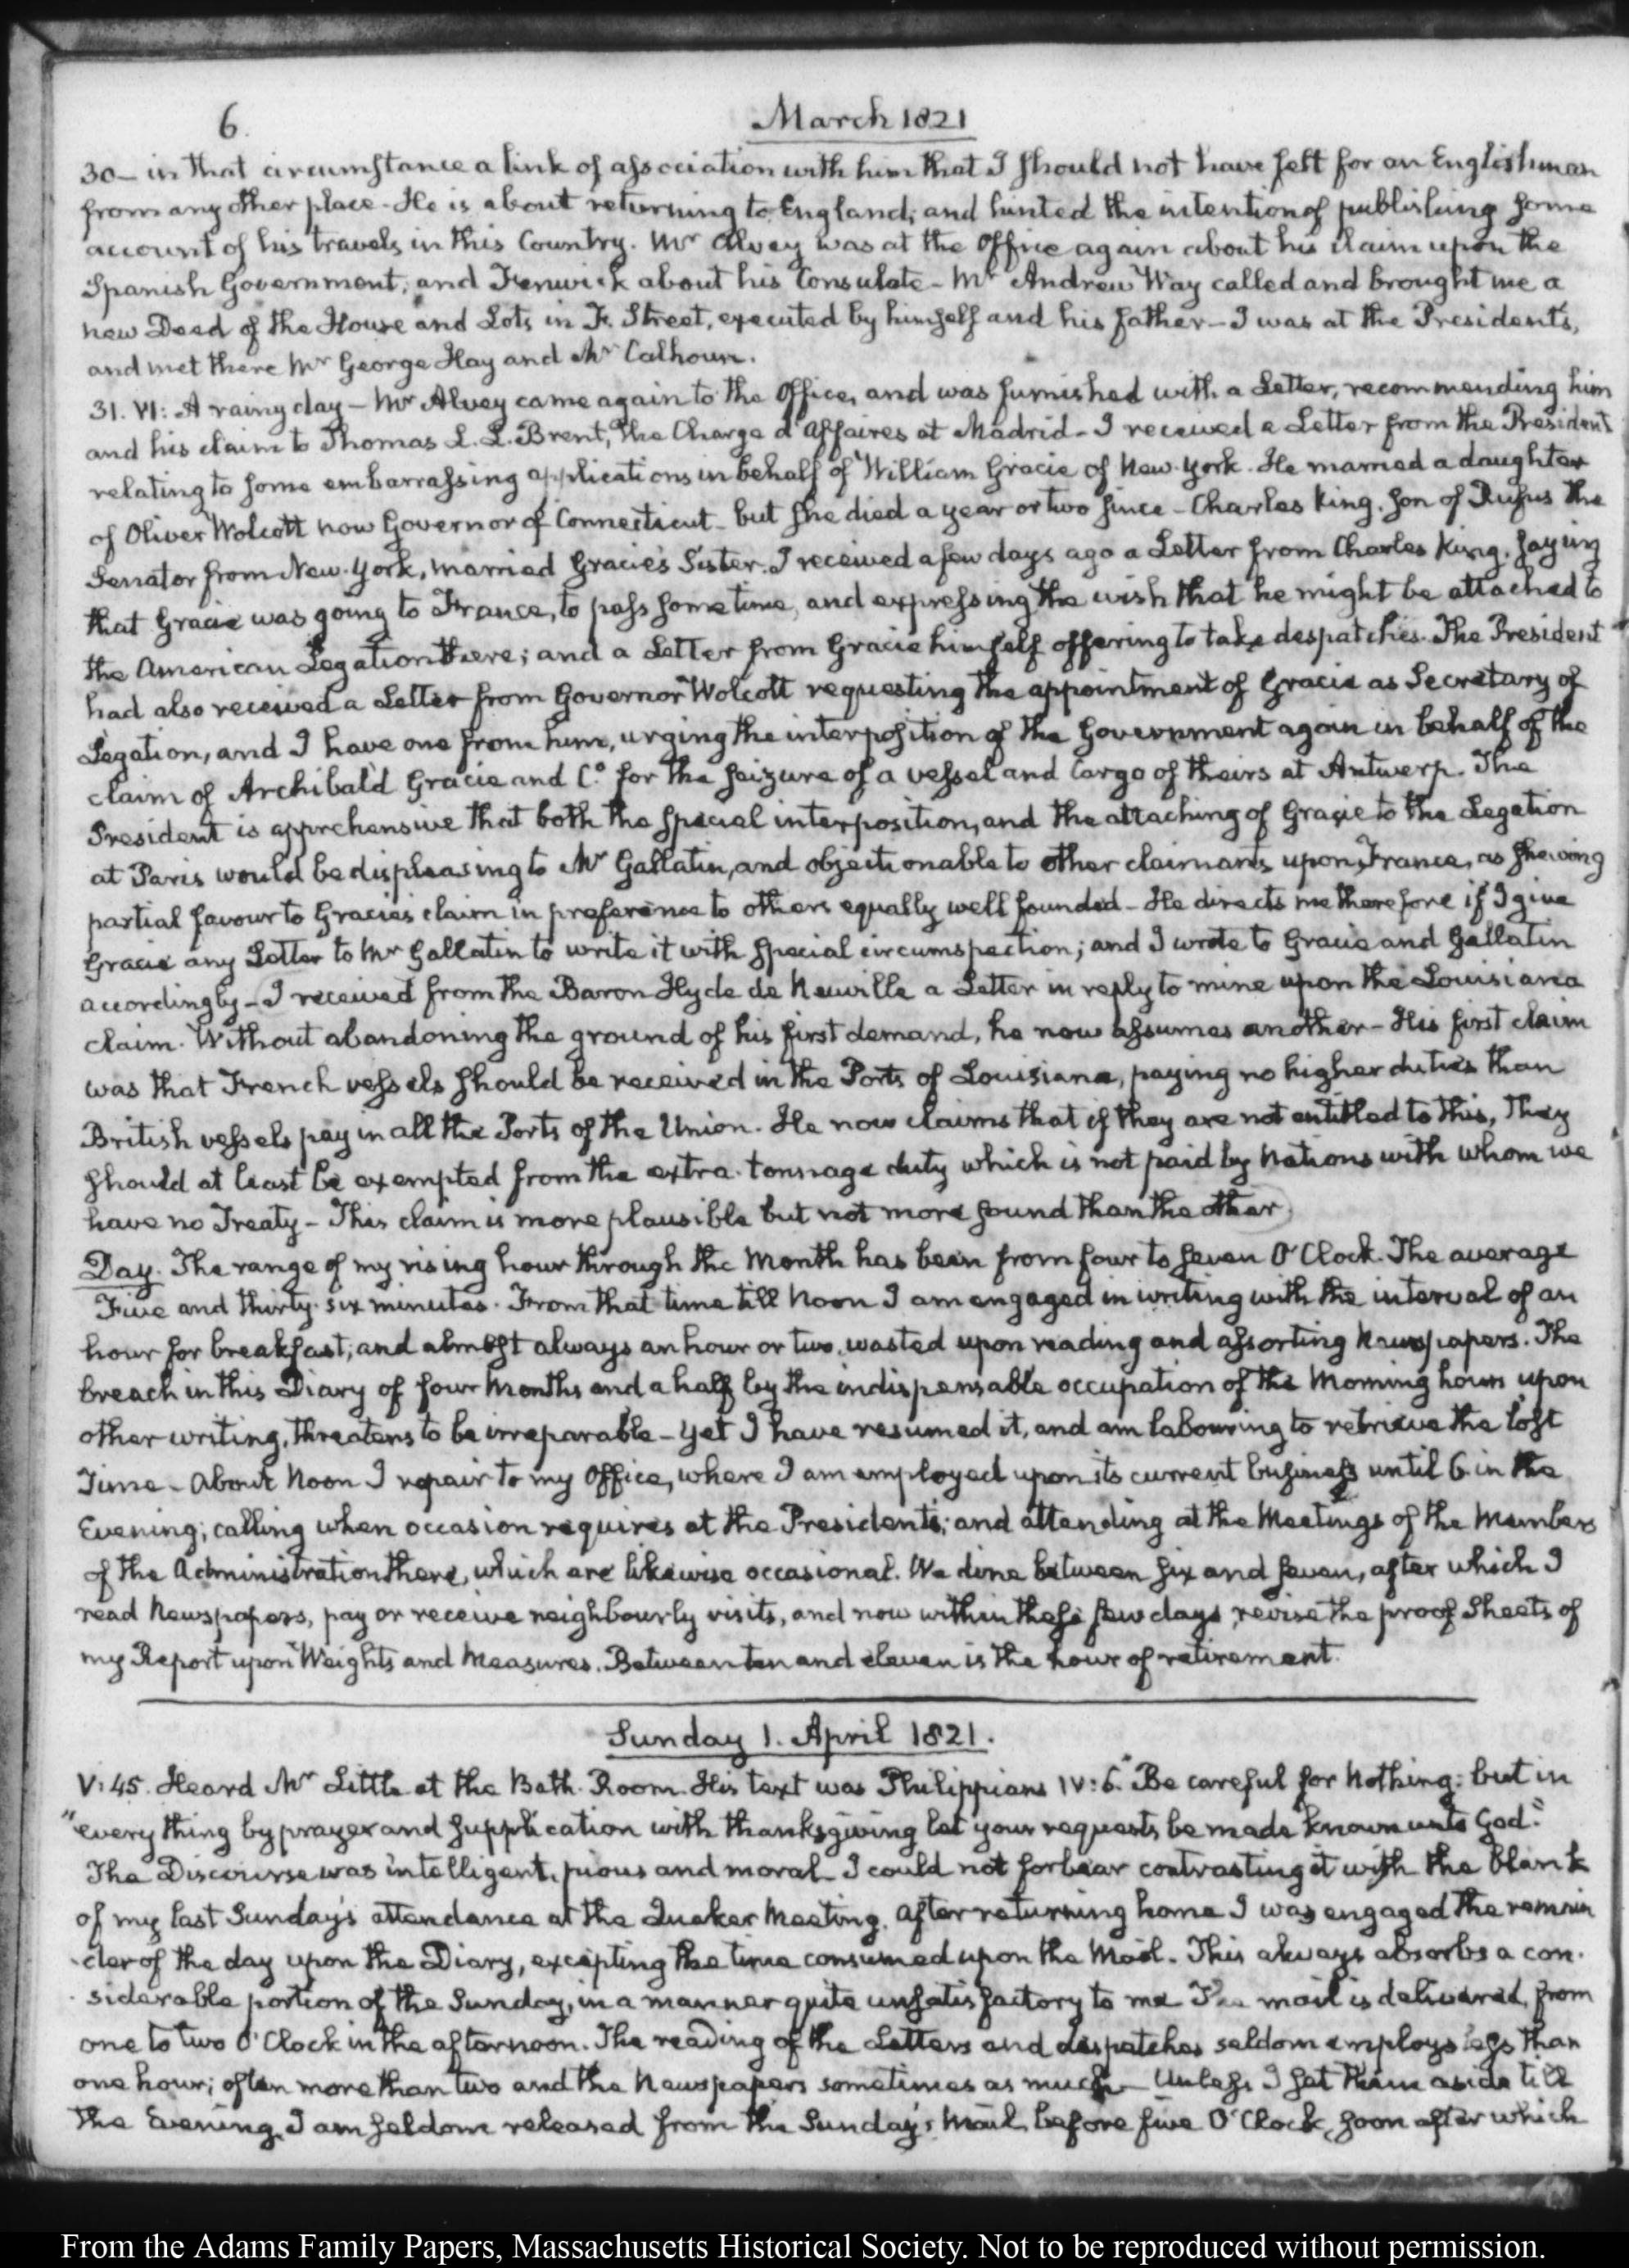 6.
March 1821
30 - in that circumstance a link of association with him that I should not have felt for an Englishman
from any other place - He is about returning to England, and hinted the intention of publishing some
account of his travels in this Country. Mr Alvey was at the Office again about his claim upon the
Spanish Government, and Fenwick about his Consulate - Mr Andrew Way called and brought me a
new Deed of the House and Lots in F. Street, executed by himself and his father - I was at the President's,
and met there Mr George Hay and Mr Calhoun.
31. VI: A rainy day - Mr Alvey came again to the Office, and was furnished with a Letter, recommending him
and his claim to Thomas L. L. Brent, the Charge d'Affaires at Madrid - I received a Letter from the President
relating to some embarrassing applications in behalf of William Gracie of New-York. He married a daughter
of Oliver Wolcott now Governor of Connecticut - but she died a year or two since - Charles King, son of Rufus the
Senator from New-York, married Gracie's Sister. I received a few days ago a Letter from Charles King, saying
that Gracie was going to France, to pass some time, and expressing the wish that he might be attached to
the American Legation there; and a Letter from Gracie himself offering to take despatches. The President
had also received a Letter from Governor Wolcott requesting the appointment of Gracie as Secretary of
Legation, and I have one from him, urging the interposition of the Government again in behalf of the
claim of Archibald Gracie and Co. for the seizure of a vessel and Cargo of theirs at Antwerp. The
President is apprehensive that both the special interposition, and the attaching of Gracie to the Legation
at Paris would be displeasing to Mr Gallatin, and objectionable to other claimants upon France, as shewing
partial favour to Gracie's claim in preference to others equally well founded - He directs me therefore if I give
Gracie any Letter to Mr Gallatin to write it with special circumspection; and I wrote to Gracie and Gallatin
accordingly - I received from the Baron Hyde de Neuville a Letter in reply to mine upon the Louisiana
claim. Without abandoning the ground of his first demand, he now assumes another - His first claim
was that French vessels should be received in the Ports of Louisiana, paying no higher duties than
British vessels pay in all the Ports of the Union. He now claims that if they are not entitled to this, they
should at least be exempted from the extra-tonnage duty which is not paid by Nations with whom we
have no Treaty - This claim is more plausible but not more sound than the other.
Day. The range of my rising hour through the Month has been from four to seven O'Clock. The average
Five and thirty-six minutes. From that time till Noon I am engaged in writing with the interval of an
hour for breakfast; and almost always an hour or two, wasted upon reading and assorting Newspapers. The
breach in this Diary of four Months and a half by the indispensable occupation of the Morning hours upon
other writing, threatens to be irreparable - yet I have resumed it, and am labouring to retrieve the lost
Time - About Noon I repair to my Office, where I am employed upon its current business until 6 in the
Evening; calling when occasion requires at the President's; and attending at the Meetings of the Members
of the Administration there, which are likewise occasional. We dine between six and seven, after which I
read Newspapers, pay or receive neighbourly visits, and now within these few days, revise the proof Sheets of
my Report upon Weights and Measures. Between ten and eleven is the hour of retirement.
Sunday 1. April 1821.
V: 45. Heard Mr Little at the Bath-Room. His text was Philippians IV: 6. "Be careful for Nothing: but in
"every thing by prayer and supplication with thanksgiving let your requests be made known unto God."
The Discourse was intelligent, pious and moral - I could not forbear contrasting it with the blank
of my last Sunday's attendance at the Quaker Meeting. After returning home I was engaged the remain
-der of the day upon the Diary, excepting the time consumed upon the Mail. This always absorbs a con-
-siderable portion of the Sunday, in a manner quite unsatisfactory to me. The mail is delivered, from
one to two O'Clock in the afternoon. The reading of the Letters and despatches seldom employs less than
one hour; often more than two and the Newspapers sometimes as much - Unless I set them aside till
the Evening, I am seldom released from the Sunday's Mail, before five O'Clock, soon after which
From the Adams Family Papers, Massachusetts Historical Society. Not to be reproduced without permission.